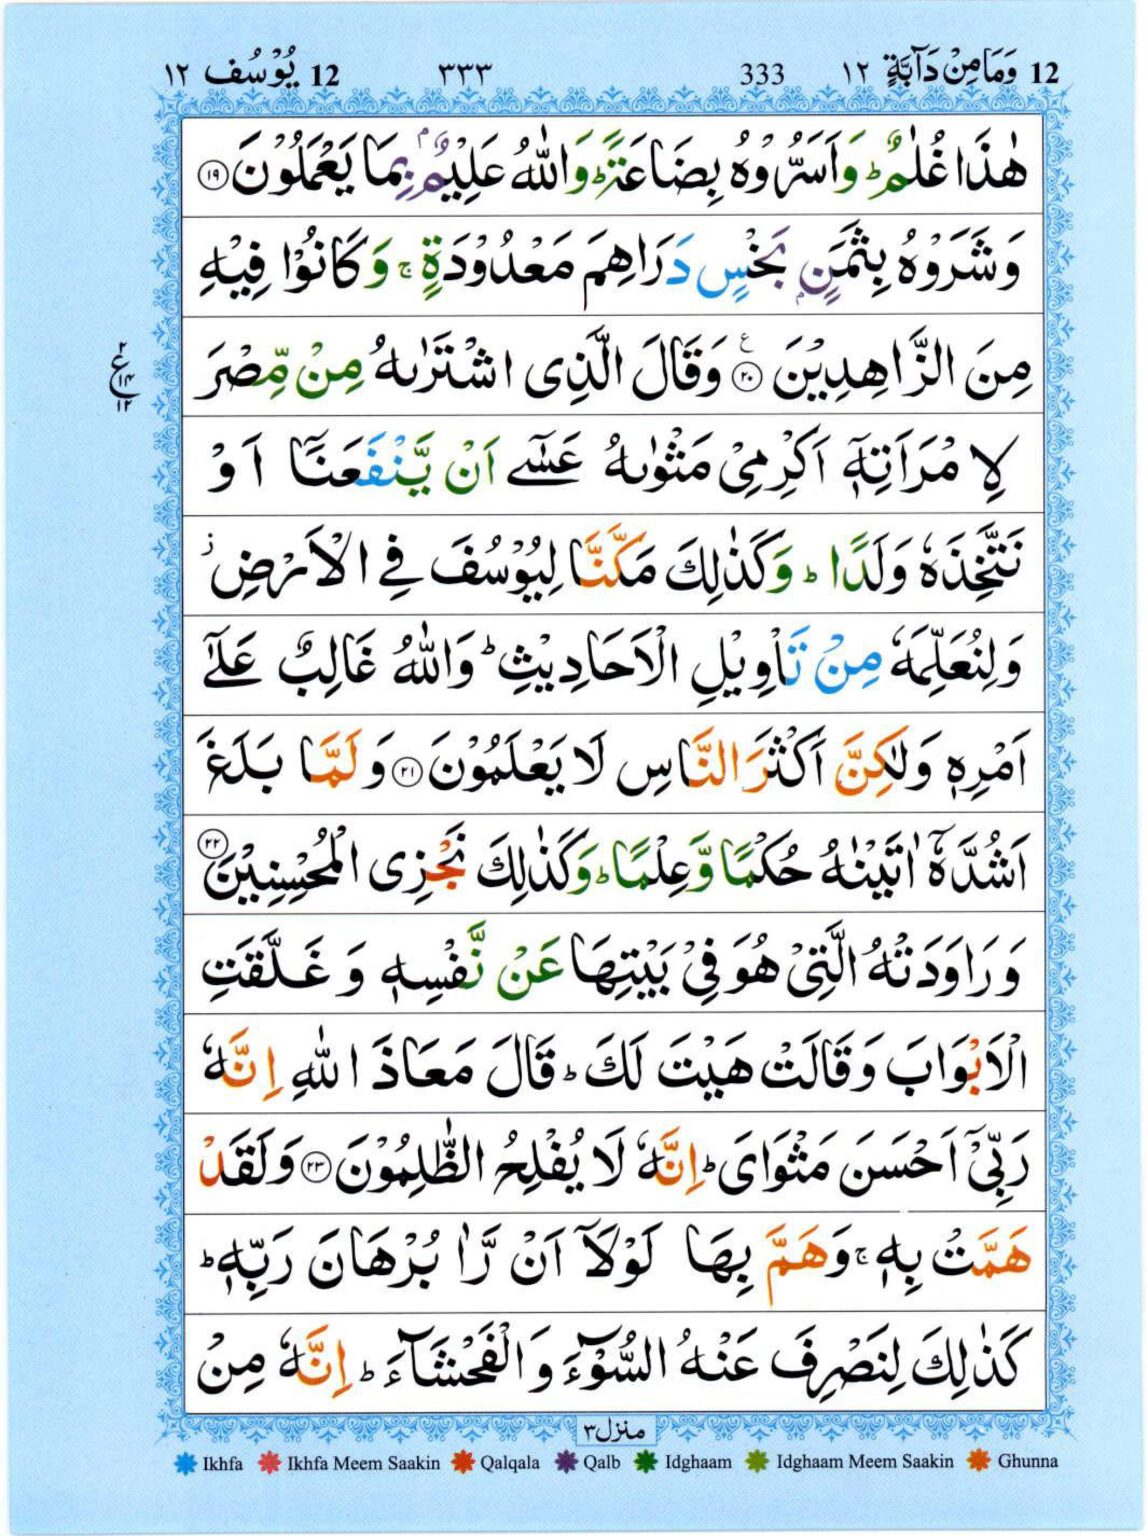 12 وَمَا مِنْ دَآبَّةٍ ١٢ 333 ٣٣٣ 12 يُوْسُف ١٢
هٰذَا غُلٰمٌ ؕ وَاَسَرُّوْهُ بِضَاعَةً ؕ وَاللّٰهُ عَلِيْمٌۢ بِمَا يَعْمَلُوْنَ ﴿١٩﴾
وَشَرَوْهُ بِثَمَنٍۢ بَخْسٍ دَرَاهِمَ مَعْدُوْدَةٍ ۚ وَكَانُوْا فِيْهِ
مِنَ الزَّاهِدِيْنَ ﴿٢٠﴾ ع وَقَالَ الَّذِى اشْتَرٰىهُ مِنْ مِّصْرَ
٢ ع ١٤ ١٢
لِامْرَاَتِهٖۤ اَكْرِمِىْ مَثْوٰىهُ عَسٰٓى اَنْ يَّنْفَعَنَاۤ اَوْ
نَتَّخِذَهٗ وَلَدًا ؕ وَكَذٰلِكَ مَكَّنَّا لِيُوْسُفَ فِى الْاَرْضِ ز
وَلِنُعَلِّمَهٗ مِنْ تَاْوِيْلِ الْاَحَادِيْثِ ؕ وَاللّٰهُ غَالِبٌ عَلٰٓى
اَمْرِهٖ وَلٰكِنَّ اَكْثَرَ النَّاسِ لَا يَعْلَمُوْنَ ﴿٢١﴾ وَلَمَّا بَلَغَ
اَشُدَّهٗۤ اٰتَيْنٰهُ حُكْمًا وَّعِلْمًا ؕ وَكَذٰلِكَ نَجْزِى الْمُحْسِنِيْنَ ﴿٢٢﴾
وَرَاوَدَتْهُ الَّتِىْ هُوَ فِىْ بَيْتِهَا عَنْ نَّفْسِهٖ وَغَلَّقَتِ
الْاَبْوَابَ وَقَالَتْ هَيْتَ لَكَ ؕ قَالَ مَعَاذَ اللّٰهِ اِنَّهٗ
رَبِّىْۤ اَحْسَنَ مَثْوَاىَ ؕ اِنَّهٗ لَا يُفْلِحُ الظّٰلِمُوْنَ ﴿٢٣﴾ وَلَقَدْ
هَمَّتْ بِهٖ ۚ وَهَمَّ بِهَا لَوْلَاۤ اَنْ رَّاٰ بُرْهَانَ رَبِّهٖ ؕ
كَذٰلِكَ لِنَصْرِفَ عَنْهُ السُّوْٓءَ وَالْفَحْشَآءَ ؕ اِنَّهٗ مِنْ
منزل ٣
Ikhfa Ikhfa Meem Saakin Qalqala Qalb Idghaam Idghaam Meem Saakin Ghunna